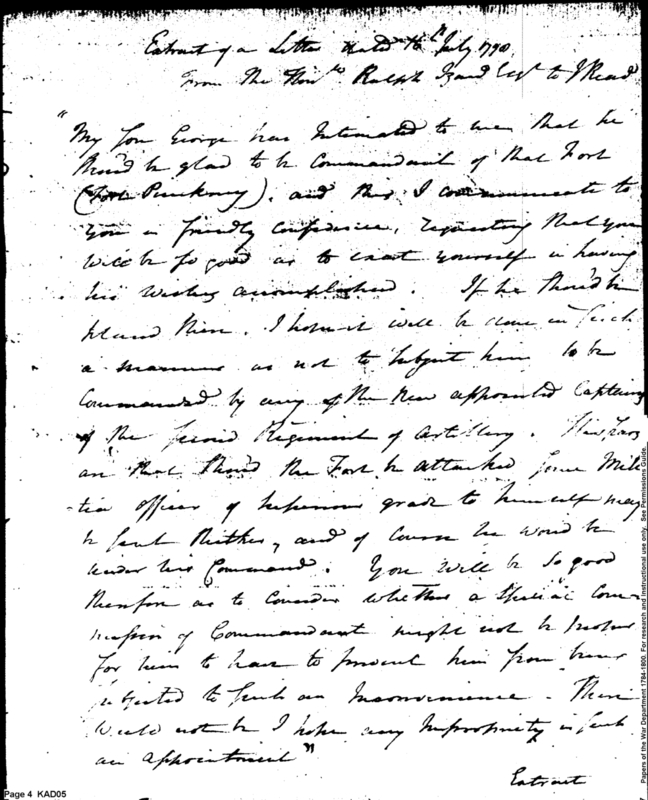 Extract of a Letter dated 16th July 1798
From The Honble Ralph Izard Esqr to J Read
"My Son George has Intimated to me that he
shou'd be glad to be Commandant of that Fort
(Fort Pinckney), and this I communicate to
you in friendly confidence, requesting that you
will be so good as to exert yourself in having
his wishes accomplished. If he shou'd be
placed there, I hope it will be done in such
a manner as not to subject him to be
Commanded by any of the new appointed Captains
of the second Regiment of Artillery. His fears
are that shou'd the Fort be attacked some Mili
-tia officer of superiour grade to himself may
be sent thither, and of course he would be
under his Command. You will be so good
therefore as to Consider whether a special Com-
mission of Commandant might not be proper
for him to have to prevent him from being
subjected to such an Inconvenience. There
would not be I hope any Impropriety in such
an appointment"
Extract
Page 4 KAD05
Papers of the War Department 1784-1800. For research and instructional use only. See Permissions Guide.